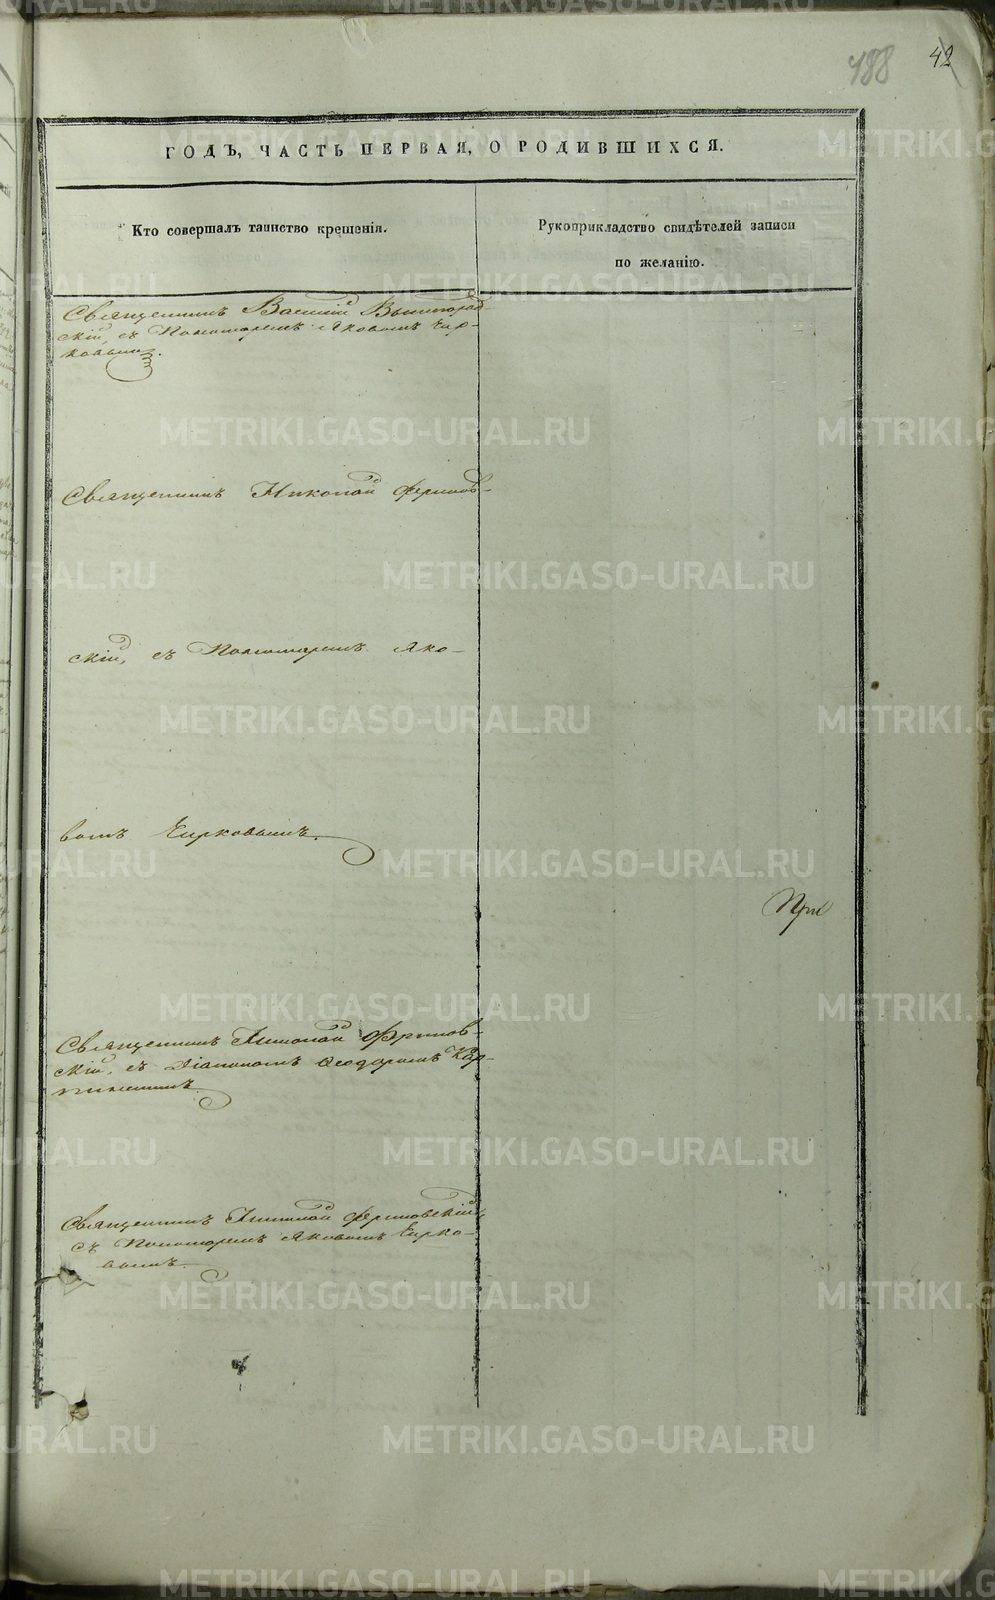 188 42
ГОДЪ, ЧАСТЬ ПЕРВАЯ, О РОДИВШИХСЯ.
Кто совершалъ таинство крещенія.
Рукоприкладство свидѣтелей записи
по желанію.
Священникъ Василій Вышегород-
скій, съ Пономаремъ Яковомъ Чир-
ковымъ.
Священникъ Николай
скій, съ Пономаремъ Яко-
вомъ Чирковымъ.
При
Священникъ Николай
скій, съ Діакономъ Ѳеодоромъ
Священникъ Николай
съ Пономаремъ Яковомъ Чирко-
вымъ.
METRIKI.GASO-URAL.RU